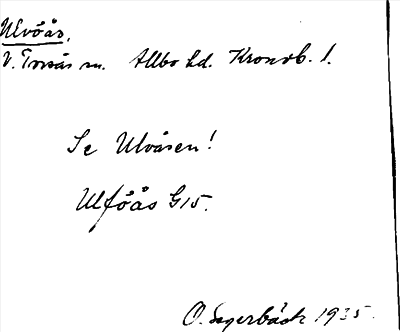 Ulvöås.
V. Torsås sn. Allbo hd. Kronob. l.
Se Ulvåsen!
Ulföås G15.
O. Lagerbäck 1935.